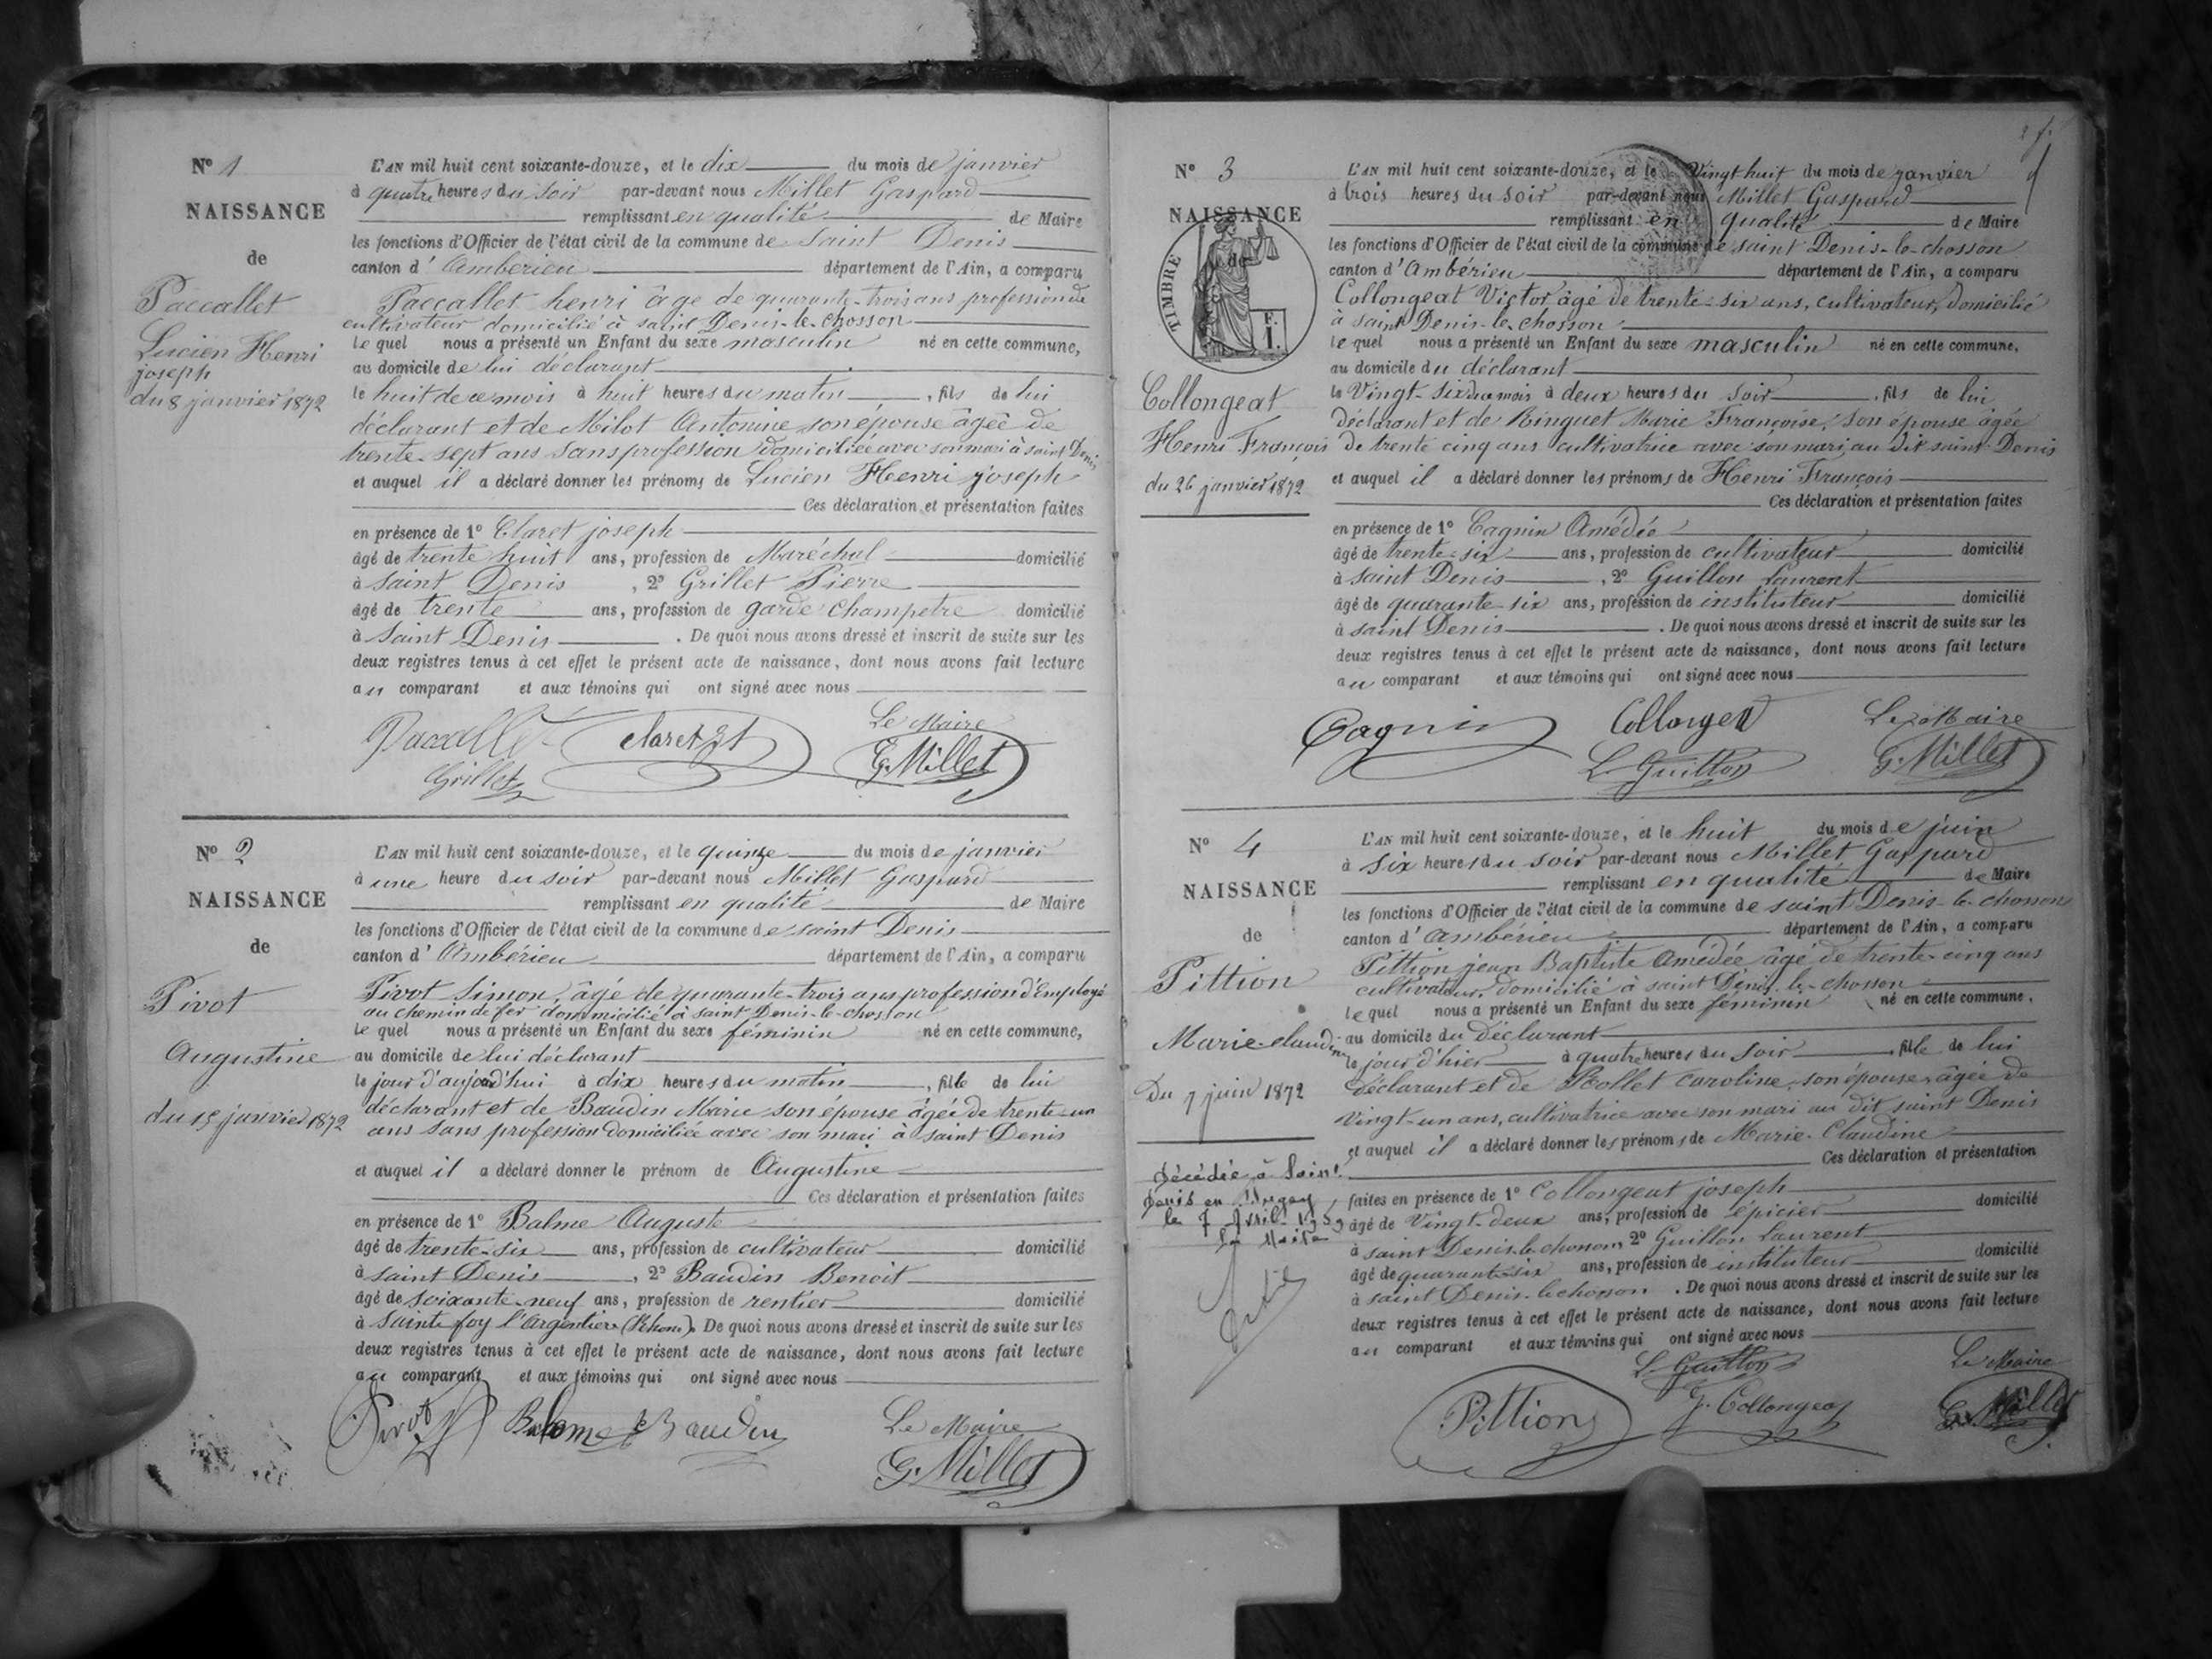 N° 1
NAISSANCE
de
Paccallet
Lucien Henri
joseph
du 8 janvier 1872
L'AN mil huit cent soixante-douze, et le dix du mois de janvier
à quatre heures du soir par-devant nous Millet Gaspard
remplissant en qualité de Maire
les fonctions d'Officier de l'état civil de la commune de Saint Denis
canton d'Ambérieu département de l'Ain, a comparu
Paccallet henri âge de quarante-trois ans profession de
cultivateur domicilié à saint Denis-le-chosson
le quel nous a présenté un Enfant du sexe masculin né en cette commune,
au domicile de lui déclarant
le huit de ce mois à huit heures du matin, fils de lui
déclarant et de Milot Antonine son épouse âgée de
trente-sept ans sans profession domiciliée avec son mari à saint Denis
et auquel il a déclaré donner les prénoms de Lucien Henri joseph
Ces déclaration et présentation faites
en présence de 1° Claret joseph
âgé de trente huit ans, profession de Maréchal domicilié
à Saint Denis, 2° Grillet Pierre
âgé de trente ans, profession de garde champetre domicilié
à Saint Denis. De quoi nous avons dressé et inscrit de suite sur les
deux registres tenus à cet effet le présent acte de naissance, dont nous avons fait lecture
au comparant et aux témoins qui ont signé avec nous
Paccallet Claret Le Maire
Grillet G. Millet
N° 2
NAISSANCE
de
Pivot
Augustine
du 15 janvier 1872
L'AN mil huit cent soixante-douze, et le quinze du mois de janvier
à une heure du soir par-devant nous Millet Gaspard
remplissant en qualité de Maire
les fonctions d'Officier de l'état civil de la commune de saint Denis
canton d'Ambérieu département de l'Ain, a comparu
Pivot Simon, âgé de quarante-trois ans profession d'Employé
au chemin de fer dommicilié à saint Denis-le-chosson
le quel nous a présenté un Enfant du sexe féminin né en cette commune,
au domicile de lui déclarant
le jour d'aujourd'hui à dix heures du matin, fille de lui
déclarant et de Baudin Marie son épouse âgée de trente-un
ans sans profession domiciliée avec son mari à saint Denis
et auquel il a déclaré donner le prénom de Augustine
Ces déclaration et présentation faites
en présence de 1° Balme Auguste
âgé de trente-six ans, profession de cultivateur domicilié
à saint Denis, 2° Baudin Benoit
âgé de soixante-neuf ans, profession de rentier domicilié
à Sainte foy l'Argentière (Rhone). De quoi nous avons dressé et inscrit de suite sur les
deux registres tenus à cet effet le présent acte de naissance, dont nous avons fait lecture
au comparant et aux témoins qui ont signé avec nous
Pivot Balme Baudin Le Maire
G. Millet
N° 3
NAISSANCE
de
TIMBRE
F.
1.
Collongeat
Henri François
du 26 janvier 1872
L'AN mil huit cent soixante-douze, et le Vingt huit du mois de janvier
à trois heures du soir par-devant nous Millet Gaspard
remplissant en qualité de Maire
les fonctions d'Officier de l'état civil de la commune de saint Denis-le-chosson
canton d'Ambérieu département de l'Ain, a comparu
Collongeat Victor âgé de trente-six ans, cultivateur, domicilié
à saint Denis-le-chosson
le quel nous a présenté un Enfant du sexe masculin né en cette commune,
au domicile du déclarant
le Vingt-six du ce mois à deux heures du soir, fils de lui
déclarant et de Ringuet Marie Françoise, son épouse âgée
de trente cinq ans cultivatrice avec son mari au dit saint Denis
et auquel il a déclaré donner les prénoms de Henri François
Ces déclaration et présentation faites
en présence de 1° Cagnin Amédée
âgé de trente-six ans, profession de cultivateur domicilié
à Saint Denis, 2° Guillon Laurent
âgé de quarante-six ans, profession de instituteur domicilié
à saint Denis. De quoi nous avons dressé et inscrit de suite sur les
deux registres tenus à cet effet le présent acte de naissance, dont nous avons fait lecture
au comparant et aux témoins qui ont signé avec nous
Cagnin Collongeat Le Maire
L. Guillon G. Millet
N° 4
NAISSANCE
de
Pittion
Marie-claudine
Du 7 juin 1872
Décédée à Saint
Denis en Bugey
le 7 Avril 1959
Le Maire
L'AN mil huit cent soixante-douze, et le huit du mois de juin
à six heures du soir par-devant nous Millet Gaspard
remplissant en qualité de Maire
les fonctions d'Officier de l'état civil de la commune de saint Denis-le-chosson
canton d'ambérieu département de l'Ain, a comparu
Pittion jean Baptiste Amédée âgé de trente-cinq ans
cultivateur, domicilié à saint Denis-le-chosson
le quel nous a présenté un Enfant du sexe féminin né en cette commune,
au domicile du Déclarant
le jour d'hier à quatre heures du soir, fille de lui
Déclarant et de Rollet Caroline, son épouse, âgée de
vingt-un ans, cultivatrice avec son mari au dit saint Denis
et auquel il a déclaré donner les prénoms de Marie-Claudine
Ces déclaration et présentation
faites en présence de 1° Collongeat joseph
âgé de Vingt-deux ans, profession de épicier domicilié
à saint Denis-le-chosson, 2° Guillon Laurent
âgé de quarante-six ans, profession de instituteur domicilié
à saint Denis-le-chosson. De quoi nous avons dressé et inscrit de suite sur les
deux registres tenus à cet effet le présent acte de naissance, dont nous avons fait lecture
au comparant et aux témoins qui ont signé avec nous
L. Guillon Le Maire
Pittion J. Collongeat G. Millet